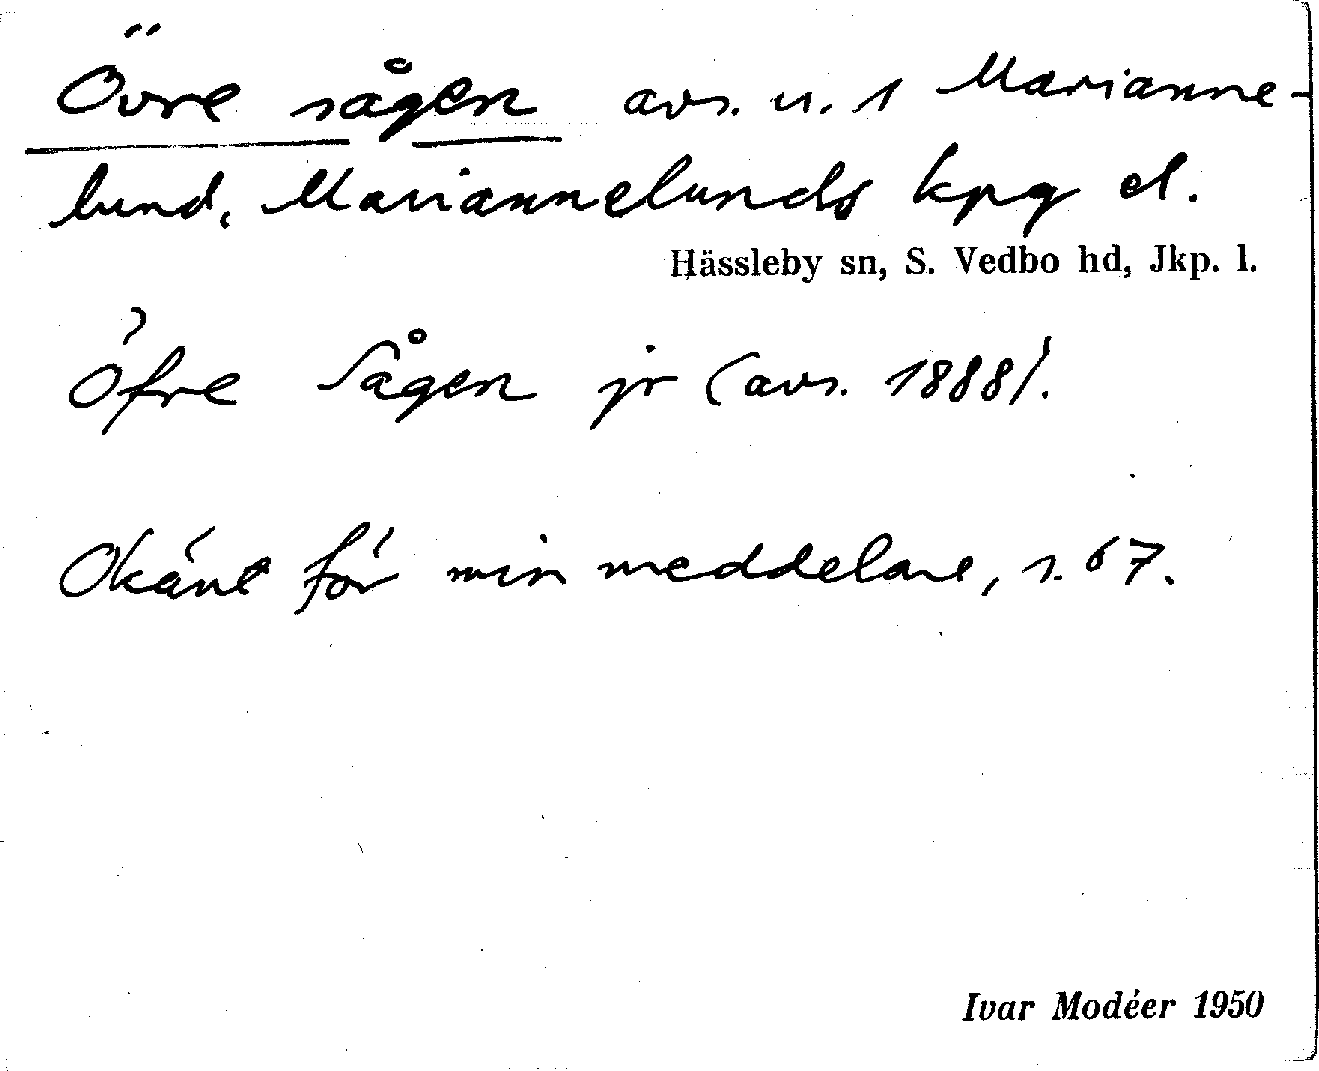 Övre sågen avs. u. 1 Marianne-
lund, Mariannelunds kpg el.
Hässleby sn, S. Vedbo hd, Jkp. l.
Öfre Sågen jr (avs. 1888).
Okänt för min meddelare, s. 67.
Ivar Modéer 1950